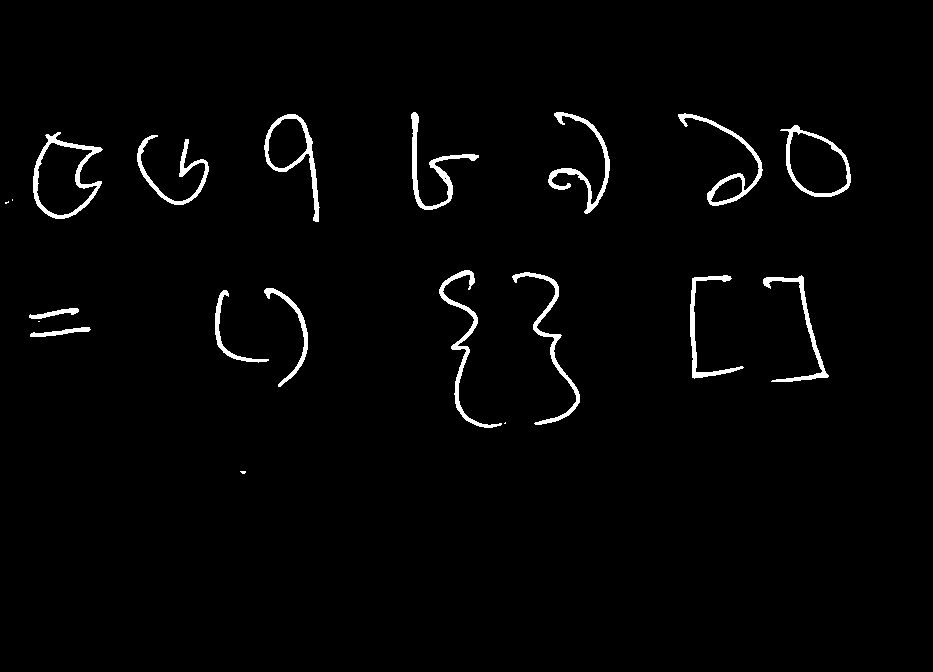 ৫ ৬ ৭ ৮ ৯ ১০
= () {} []